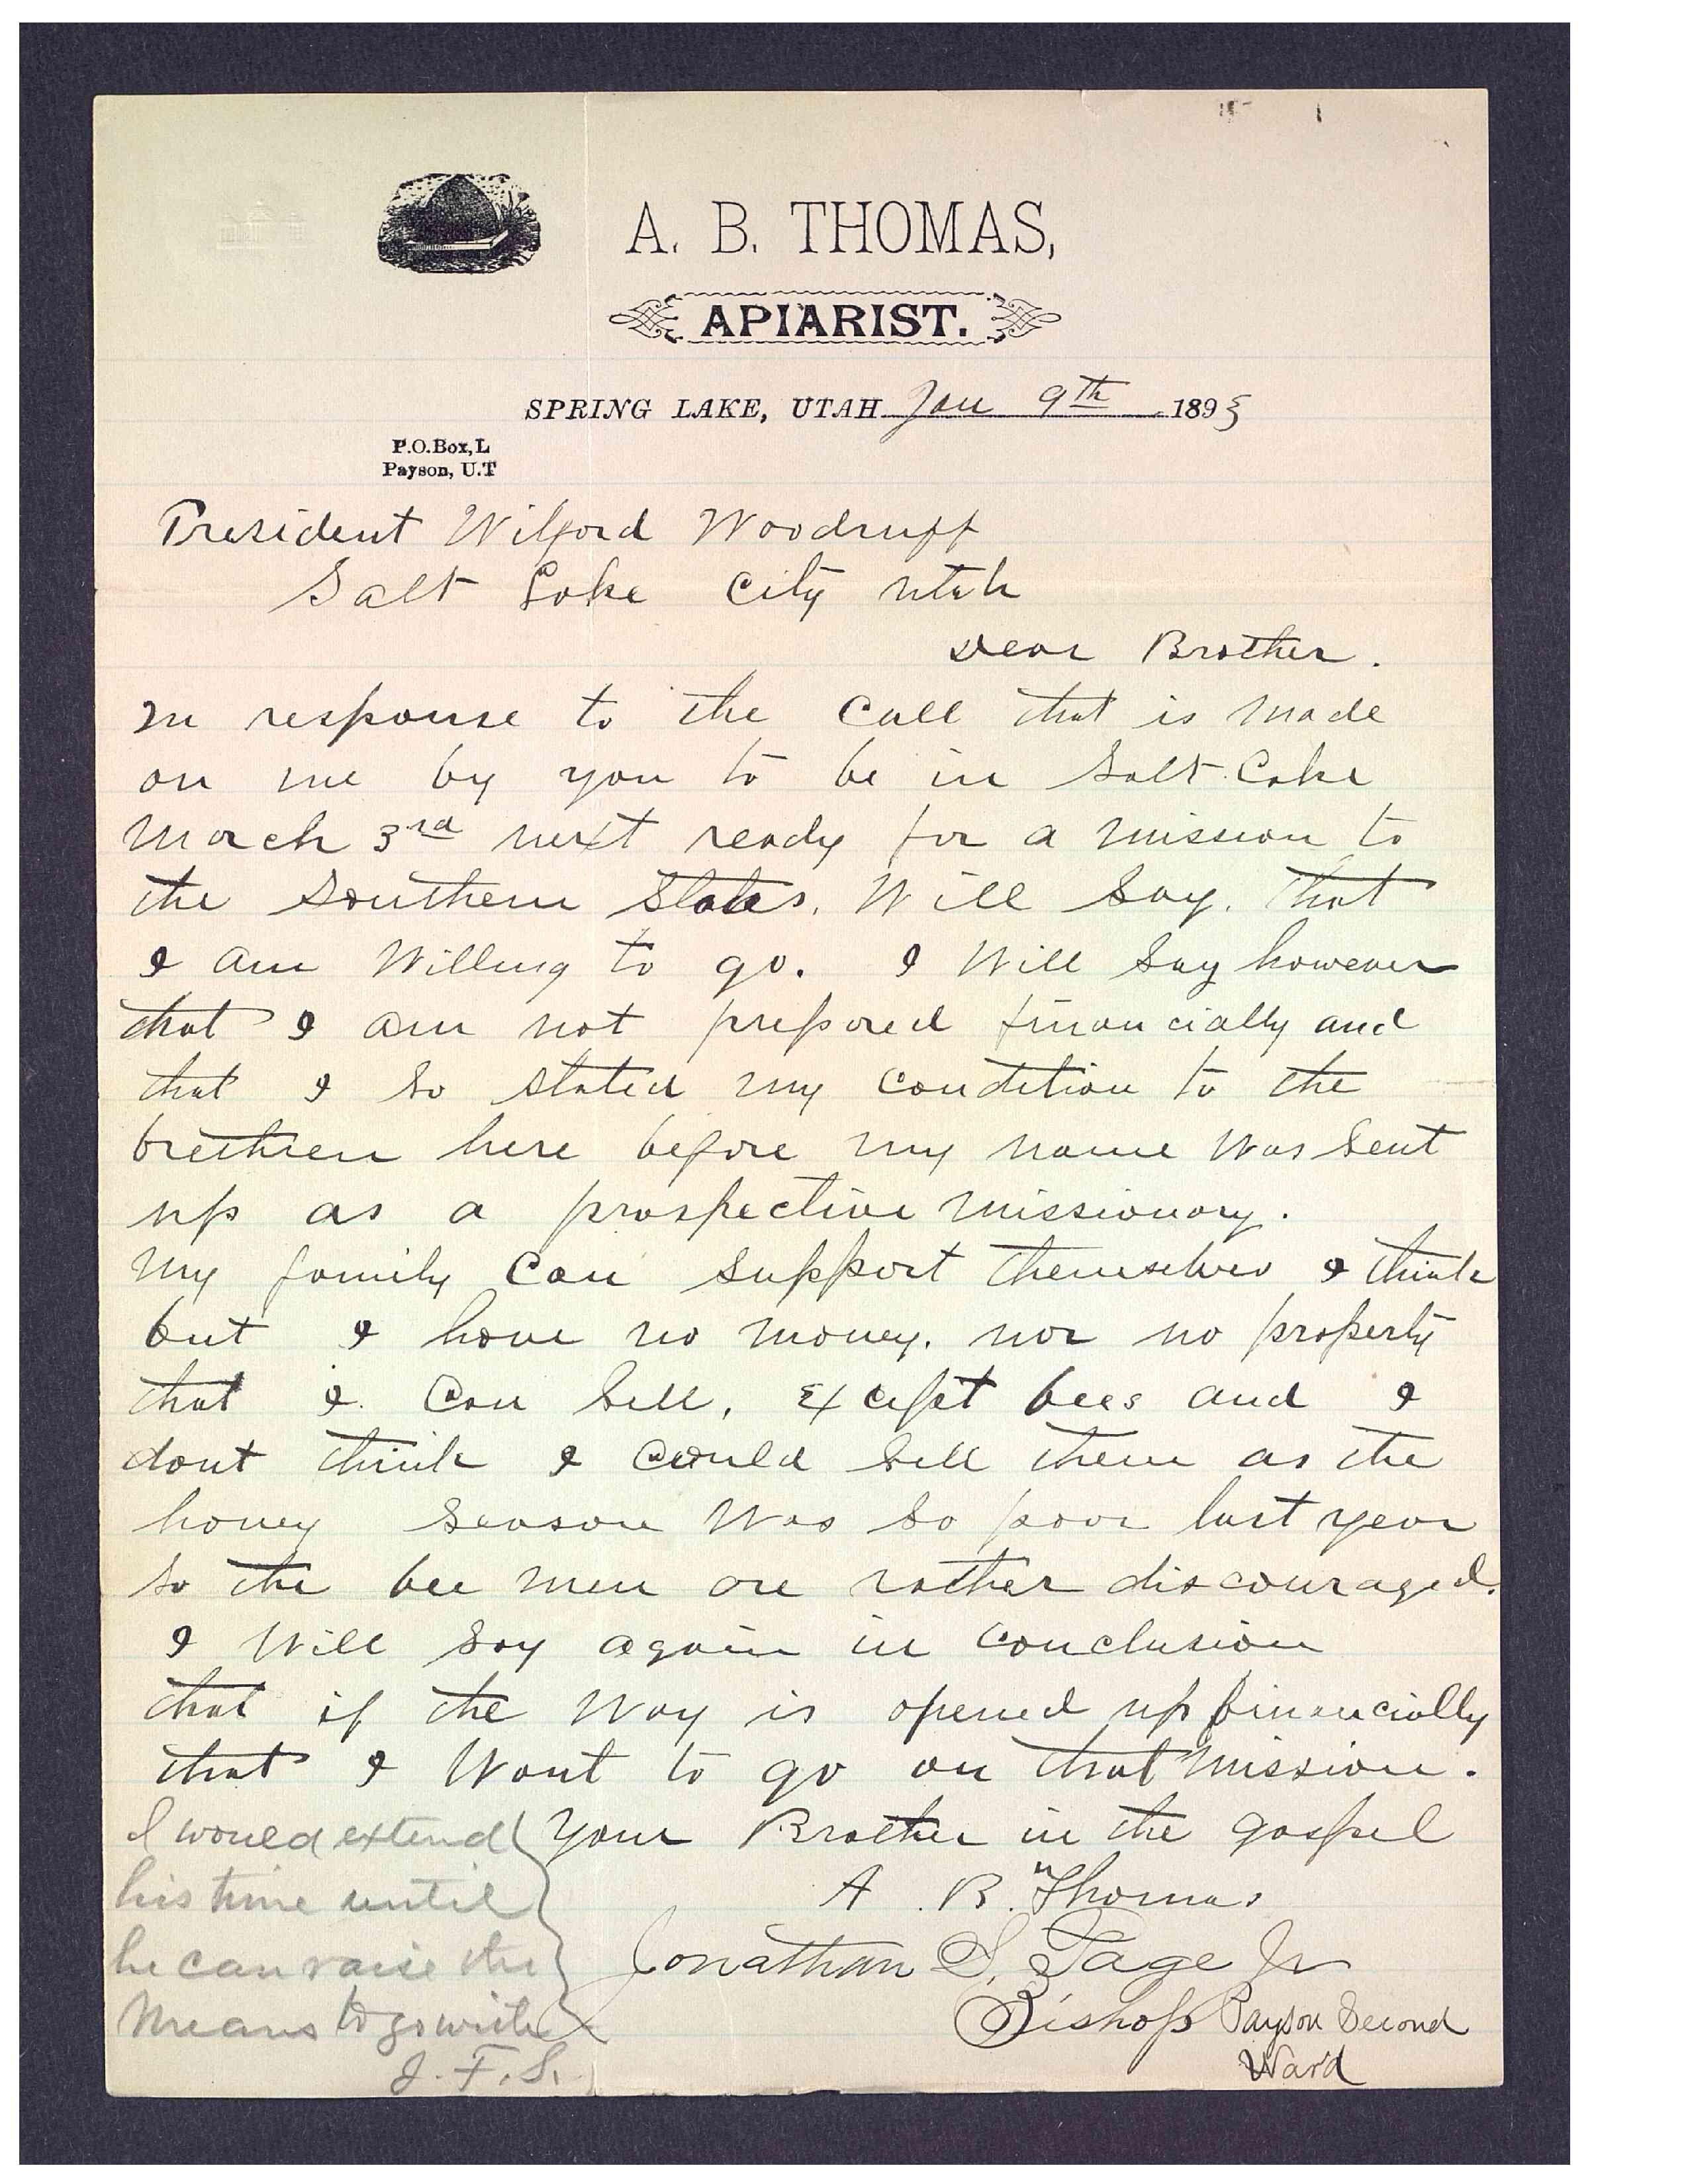 A. B. THOMAS,
APIARIST.
SPRING LAKE, UTAH Jan 9th 1893
P.O.Box, L
Payson, U.T
President Wilford Woodruff
Salt Lake City Utah
Dear Brother.
In response to the Call that is Made
on me by you to be in Salt Lake
March 3rd next ready for a Mission to
the Southern States, Will Say, that
I am Willing to go. I Will Say however
that I am not prepared financially and
that I So stated my Condition to the
brethren here before my name Was Sent
up as a prospective Missionary.
My family Can Support themselves I think
but I have no Money, nor no property
that I Can Sell, Except bees and I
dont think I Could Sell them as the
honey Season Was So poor last year
So the bee men are rather discouraged.
I Will Say again in Conclusion
that if the Way is opened up financially
that I Want to go on that Mission.
Your Brother in the gospel
A. B. Thomas
Jonathan S. Page Jr
Bishop Payson Second
Ward
I would extend
his time until
he can raise the
Means to go with
J. F. S.